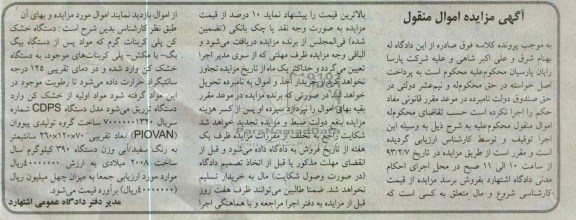 آگهی مزایده اموال منقول
به موجب پرونده کلاسه فوق صادره از این دادگاه له
بهنام شرق و علی اکبر شاهی و علیه شرکت پارسا
رایان پارسیان محکوم‌علیه محکوم است به پرداخت
اصل خواسته در حق محکوم‌له و نیم‌عشر دولتی در
حق صندوق دولت نامبرده در موعد مقرر قانونی مفاد
حکم را اجرا نکرده است حسب تقاضای محکوم‌له
اموال منقول محکوم‌علیه به شرح ذیل به وسیله این
اجرا توقیف و توسط کارشناس ارزیابی گردیده
است و مقرر است از طریق مزایده در تاریخ ۹۳/۲/۷
از ساعت ۱۰ الی ۱۱ صبح در محل اجرای احکام
مدنی دادگاه اشتهارد بفروش برسد مزایده از قیمت
کارشناسی شروع و مال متعلق به کسی است که
بالاترین قیمت را پیشنهاد نماید ۱۰ درصد از قیمت
مزایده به صورت وجه نقد یا چک بانکی (تضمین
شده) فی‌المجلس از برنده مزایده دریافت می‌شود و
الباقی وجه مزایده ظرف مهلتی که از سوی مدیر اجرا
تعیین می‌گردد و حداکثر یک ماه از تاریخ مزایده تجاوز
نخواهد کرد از خریدار أخذ و اموال به نامبرده تحویل
خواهد شد. در صورتی که برنده مزایده در موعد مقرر
بقیه بهای اموال را نپردازد سپرده او پس از کسر هزینه
مزایده بنفع دولت ضبط و مزایده تجدید خواهد شد
شکایت راجع به تخلف از مقررات مزایده ظرف یک
هفته از تاریخ فروش به دادگاه داده می‌شود و قبل از
انقضای مهلت مذکور یا قبل از اتخاذ تصمیم دادگاه
(در صورت وصول شکایت) مال به خریدار تسلیم
نخواهد شد. ضمنا طالبین می‌توانند ظرف هفت روز
قبل از مزایده به دفتر اجرا مراجعه و با هماهنگی اجرا
از اموال بازدید نمایند اموال مورد مزایده و بهای آن
طبق نظر کارشناس بدین شرح است : دستگاه خشک
کن پلی کربنات گرم که مواد پس از دستگاه بیگ
بک- با مکش- پلی کربنات‌های موجود، به دستگاه
خشک کن وارد شده و در دمای تقریبی ۱۲۵ درجه
سانتیگراد حرارت داده می‌شود تا رطوبت موجود در
این مواد گرفته شود مواد اولیه از خشک کن وارد
دستگاه تزریق می‌شود مدل دستگاه CDPS شماره
سریال ۷۰۰۰۰۰۰۱۳۲۰ ساخت گروه تولیدی پیووان
(PIOVAN) ابعاد تقریبی ۷۰×۱۲۰×۲۶۰ سانتیمتر
به رنگ سفید/آبی وزن دستگاه ۳۹۰ کیلوگرم سال
ساخت ۲۰۰۸ میلادی به ارزش ۴۰۰۰۰۰۰۰ریال
موارد مورد ارزیابی جمعا به میزان چهل میلیون ریال
(۴۰۰۰۰۰۰۰ریال) برآورد قیمت می‌شود.
مدیر دفتر دادگاه عمومی اشتهارد